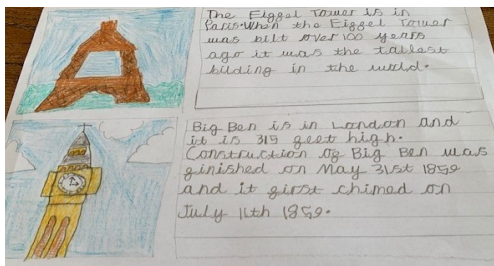 The Eiggel Tower is in
Paris. When the Eiggel Tower
was bilt over 100 years
ago it was the tallest
bilding in the world.
Big Ben is in London and
it is 319 geet high.
Construction og Big Ben was
ginished on May 31st 1859
and it girst chimed on
July 11th 1859.